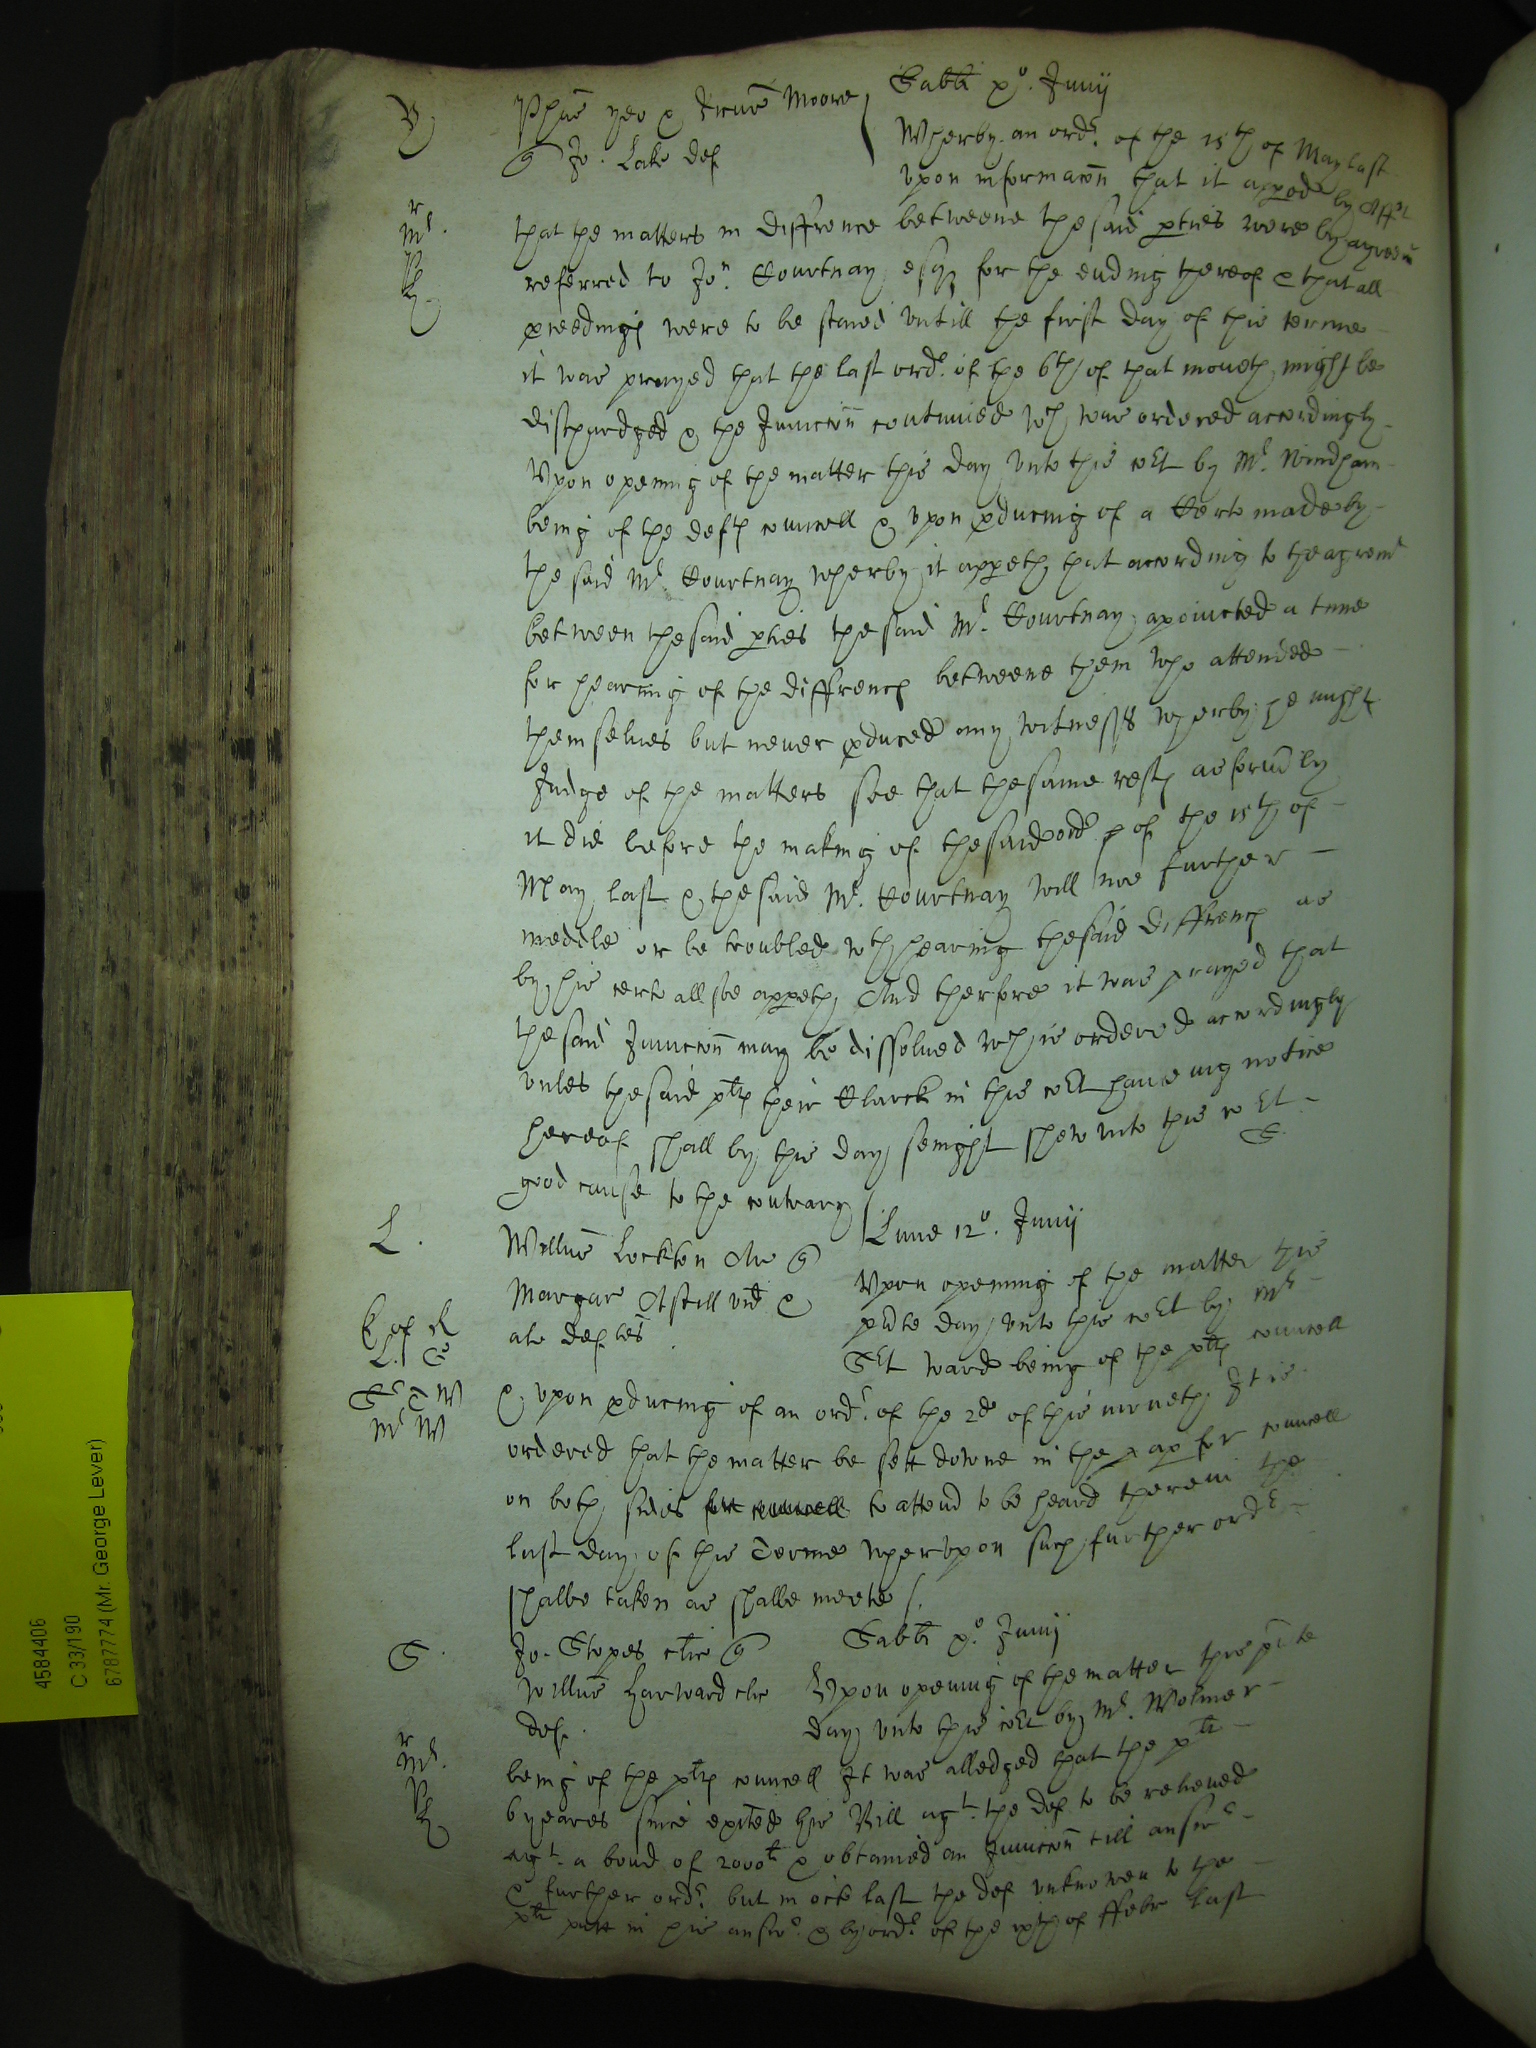 Y
Phus Yeo & Jreus Moore
Sabbi xo. Junij
q Jo. Lake def
Wherby an ordr of the 15th of May last
vpon informacon that it apped by Affit
Mr.
that the matters in diffrence betweene the said pties were by agreemt
referred to Jon. Courtnay esq for the ending thereof & that all
pceedings were to be staied vntill the first day of this terme
it was prayed that the last ordr. of the 6th of that moneth might be
dischardged & the Juncon continued wch was ordered accordingly
Vpon opening of the matter this day vnto this cot by Mr. Windham
being of the defts councell & vpon pducing of a Certe made by
the said Mr. Courtnay wherby it appeth that according to the agremt
between the said pties the said Mr. Courtnay apointed a time
for hearing of the diffrencs betweene them who attended
themselues but neuer pduced any witnesses wherby he might
Judge of the matters soe that the same rests as formly
it did before the making of the said ordr of the 15th of
May last & the said Mr. Courtnay will noe further
meddle or be troubled wth hearing the said diffrencs as
by his certe allsoe appeth And therfore it was prayed that
the said Juncon may be dissolued wch is ordered accordingly
vnles the said plts their Clarck in this cot haueing notice
hereof shall by this day senight shew vnto this cot
good cause to the contrary
S
L.
Willm Lockton Ar q
Lune 12o. Junij
Margar Astill vid &
Vpon opening of the matter this
al defts
pnte day vnto this cot by Mr
L. S
Sct ward being of the plts councell
Sr T W
& vpon pducing of an ordr. of the 2d of this moneth It is
Mr W
ordered that the matter be sett downe in the pap for councell
on both sides for councell to attend to be heard therein the
last day of this Terme wherupon such further ordr
shalbe taken as shalbe meete
S.
Jo. Stopes clic q
Sabbi xo. Junij
Willm Harward clic
Vpon opening of the matter this pnte
def.
day vnto this cot by Mr. Wolmer
Mr.
being of the plts councell It was alledged that the plt
6 yeares since exited his Bill agt. the def to be releued
agt. a bond of 2000li & obtained an Juncon till answr
& further ordr. but in octo last the def vnknowen to the
plt putt in his answr. & by ordr. of the ixth of ffebr last
4584406
C 33/190
6787774 (Mr. George Lever)